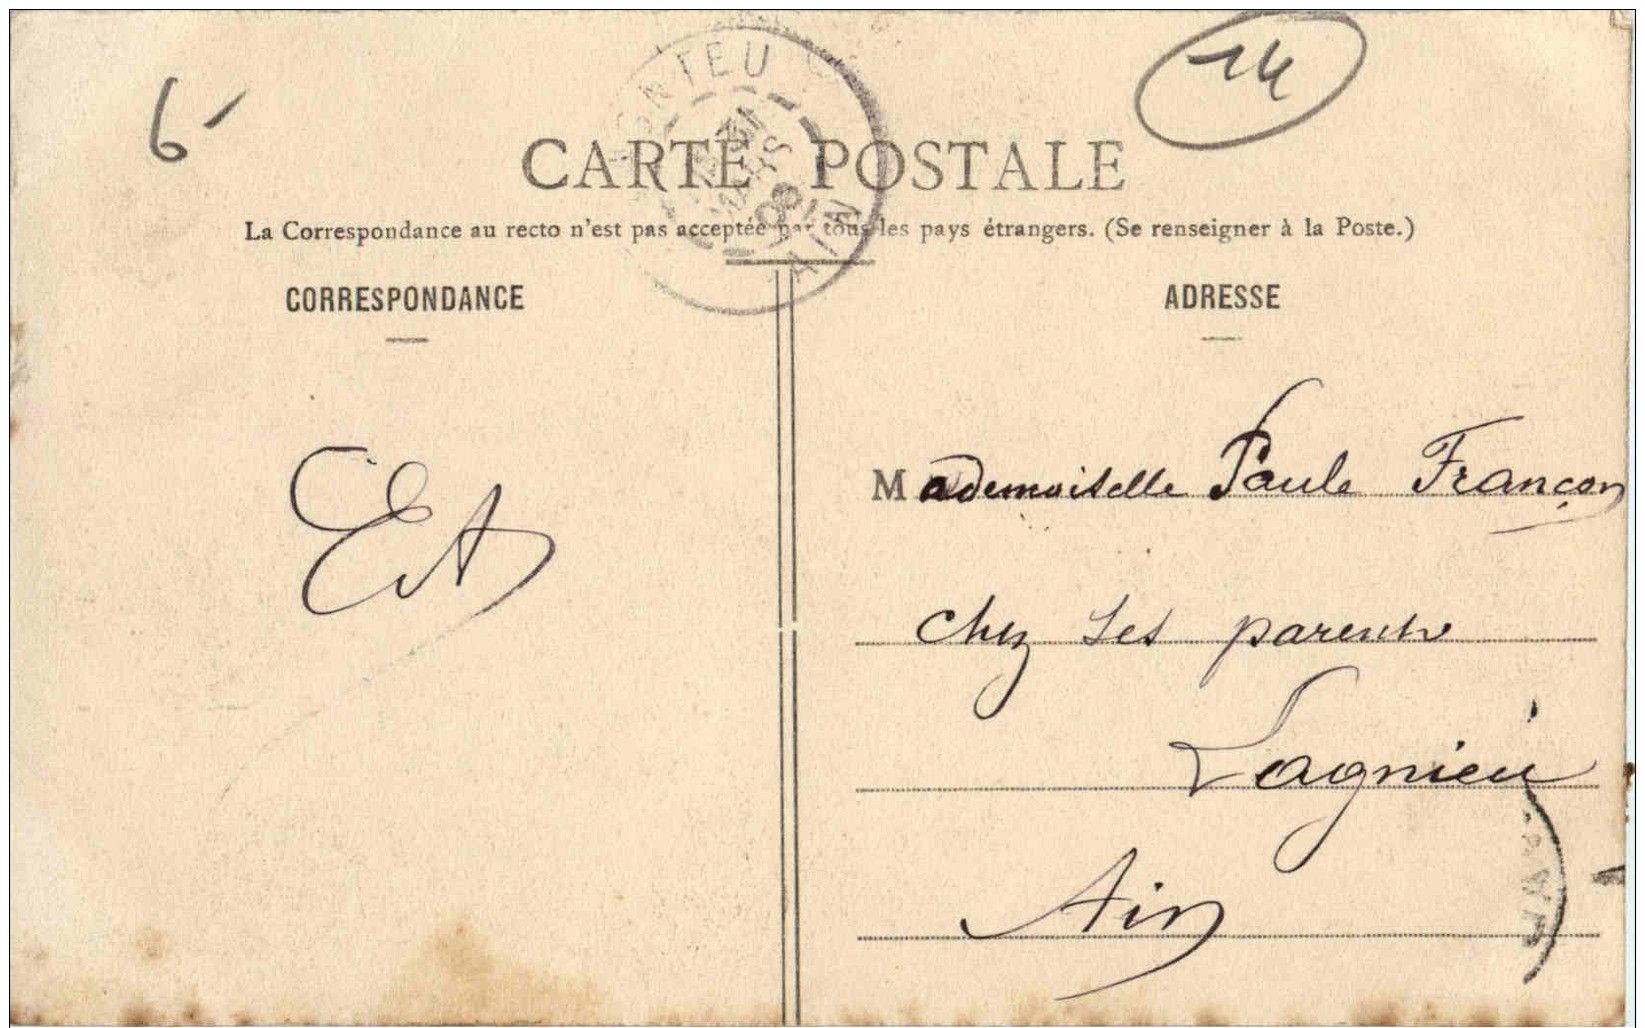 6-
14
CARTE POSTALE
La Correspondance au recto n'est pas acceptée par tous les pays étrangers. (Se renseigner à la Poste.)
CORRESPONDANCE
ADRESSE
EA
Mademoiselle Paule Françon
chez ses parents
Lagnieu
Ain
AIN